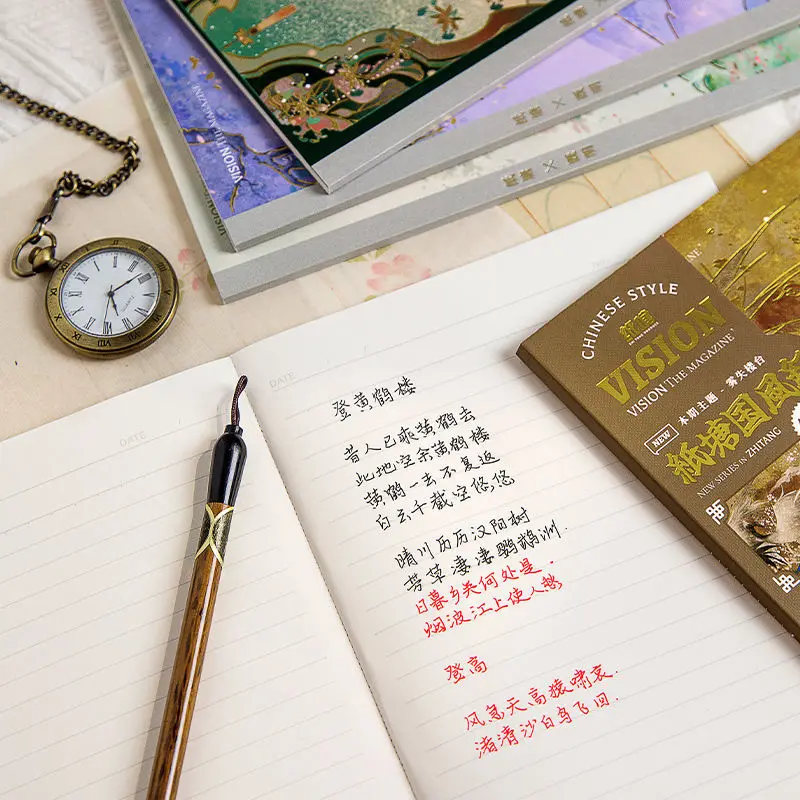 VISION THE MAGAZINE
DATE
DATE
登黄鹤楼
昔人已乘黄鹤去
此地空余黄鹤楼
黄鹤一去不复返
白云千截空悠悠
晴川历历汉阳树
芳草淒淒鹦鹉洲.
日暮乡关何处是.
烟波江上使人愁
登高
风急天高猿啸哀.
渚清沙白鸟飞旧.
CHINESE STYLE
VISION
VISION THE MAGAZINE
NEW 本期主题 雾失楼台
紙塘國風
NEW SERIES IN ZHITANG